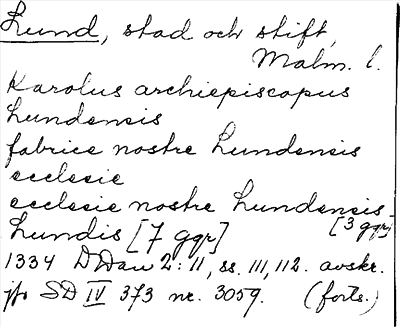 Lund, stad och stift,
Malm. l.
Karolus archiepiscopus
Lundensis
fabrice nostre Lundensis
ecclesie
ecclesie nostre Lundensis
[3 ggr]
Lundis [7 ggr]
1334 DDan 2:11, ss. 111, 112. avskr.
jfr SD IV 373 nr. 3059. (forts.)